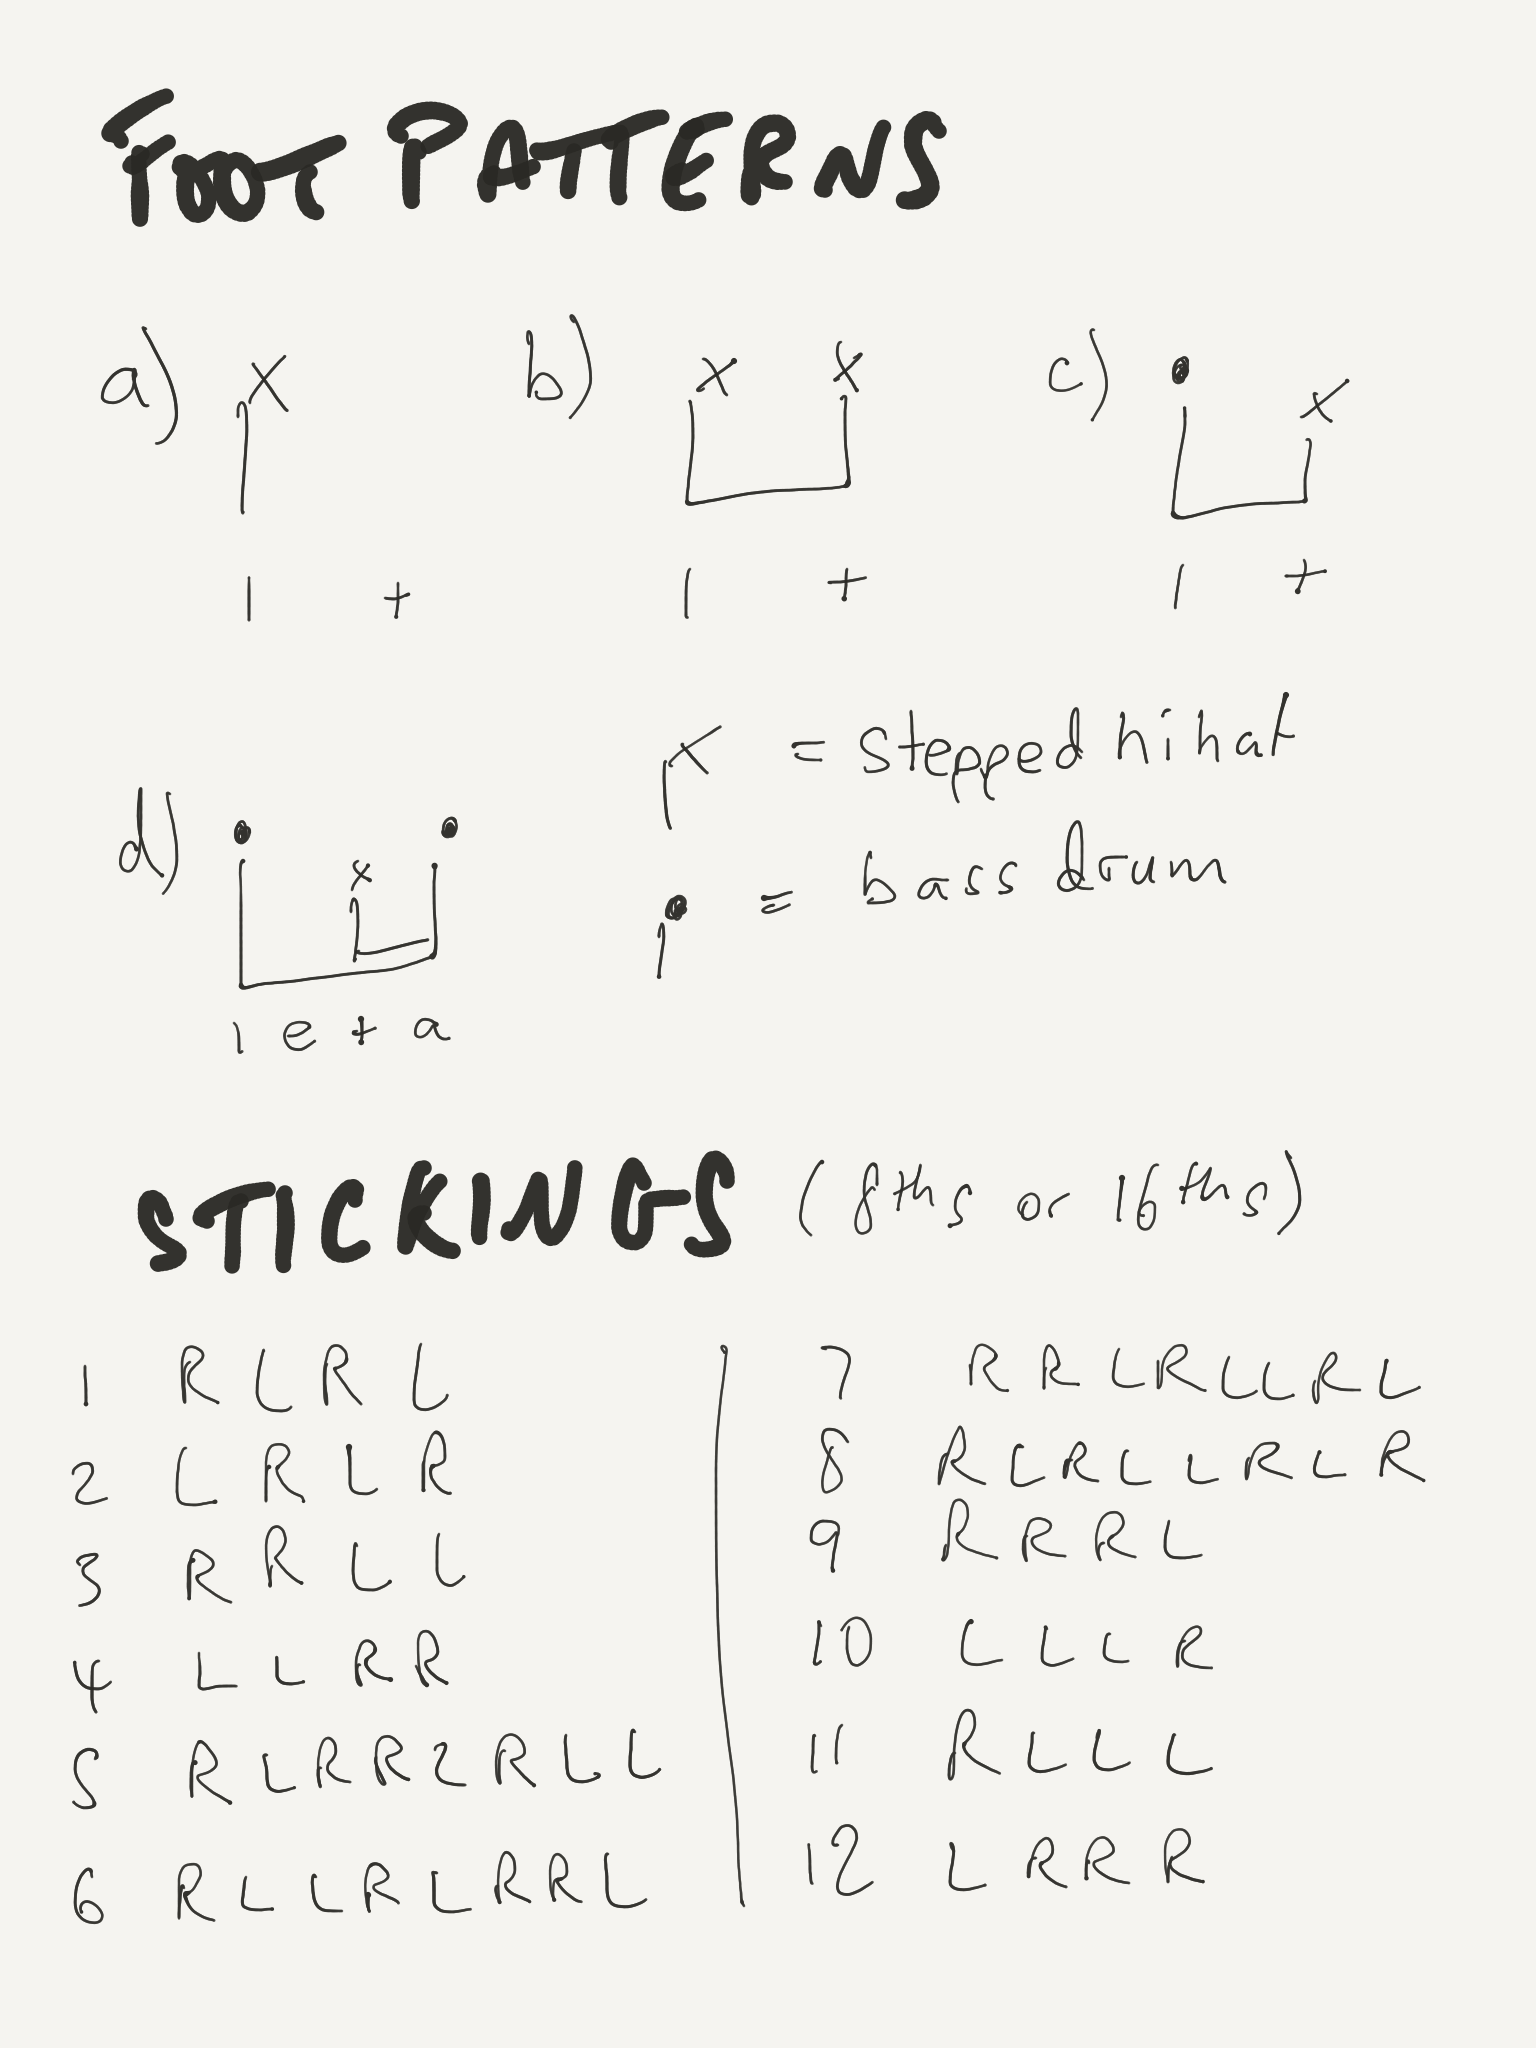 FOOT PATTERNS
a) x
1 +
b) x x
1 +
c) x
1 +
d) x
1 e + a
x = stepped hihat
= bass drum
STICKINGS (8ths or 16ths)
1 R L R L
2 L R L R
3 R R L L
4 L L R R
5 R L R R L R L L
6 R L L R L R R L
7 R R L R L L R L
8 R L R L L R L R
9 R R R L
10 L L L R
11 R L L L
12 L R R R